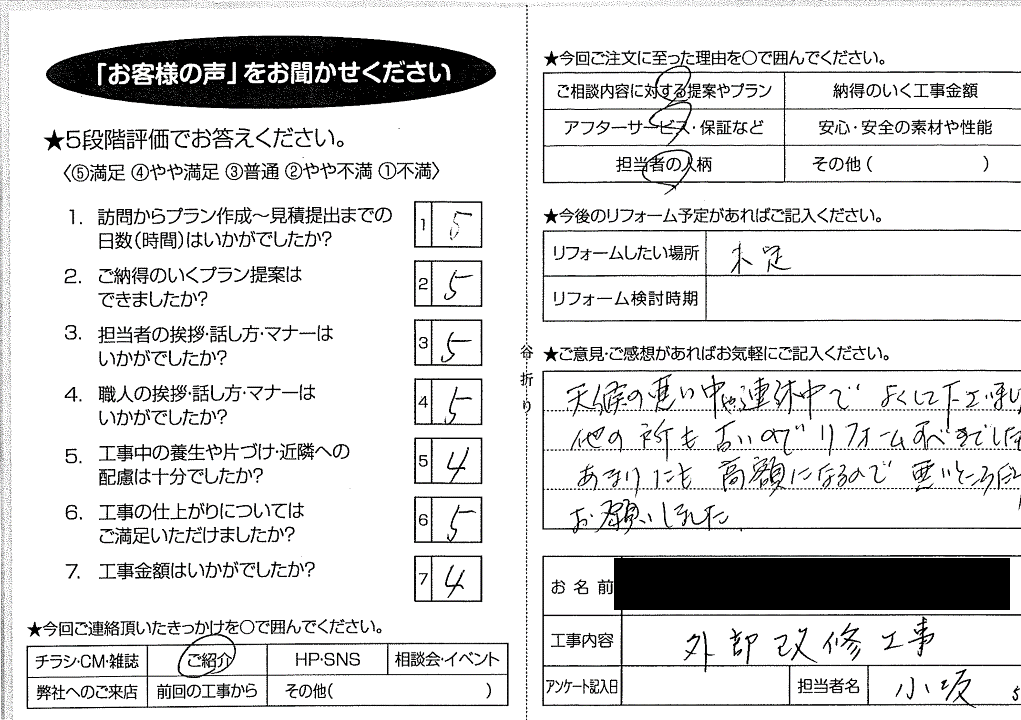 「お客様の声」をお聞かせください
★5段階評価でお答えください。
〈⑤満足 ④やや満足 ③普通 ②やや不満 ①不満〉
1. 訪問からプラン作成〜見積提出までの
日数(時間)はいかがでしたか?
1 5
2. ご納得のいくプラン提案は
できましたか?
2 5
3. 担当者の挨拶・話し方・マナーは
いかがでしたか?
3 5
4. 職人の挨拶・話し方・マナーは
いかがでしたか?
4 5
5. 工事中の養生や片づけ・近隣への
配慮は十分でしたか?
5 4
6. 工事の仕上がりについては
ご満足いただけましたか?
6 5
7. 工事金額はいかがでしたか?
7 4
★今回ご連絡頂いたきっかけを〇で囲んでください。
チラシ・CM・雑誌 ご紹介 HP・SNS 相談会・イベント
弊社へのご来店 前回の工事から その他( )
谷折り
★今回ご注文に至った理由を〇で囲んでください。
ご相談内容に対する提案やプラン 納得のいく工事金額
アフターサービス・保証など 安心・安全の素材や性能
担当者の人柄 その他( )
★今後のリフォーム予定があればご記入ください。
リフォームしたい場所 未定
リフォーム検討時期
★ご意見・ご感想があればお気軽にご記入ください。
天候の悪い中や連休中で よくして下さい
他の所も古いのでリフォームすべきでした
あまりにも高額になるので 悪いところだけ
お願いしました
お名前
工事内容 外部改修工事
アンケート記入日 担当者名 小坂